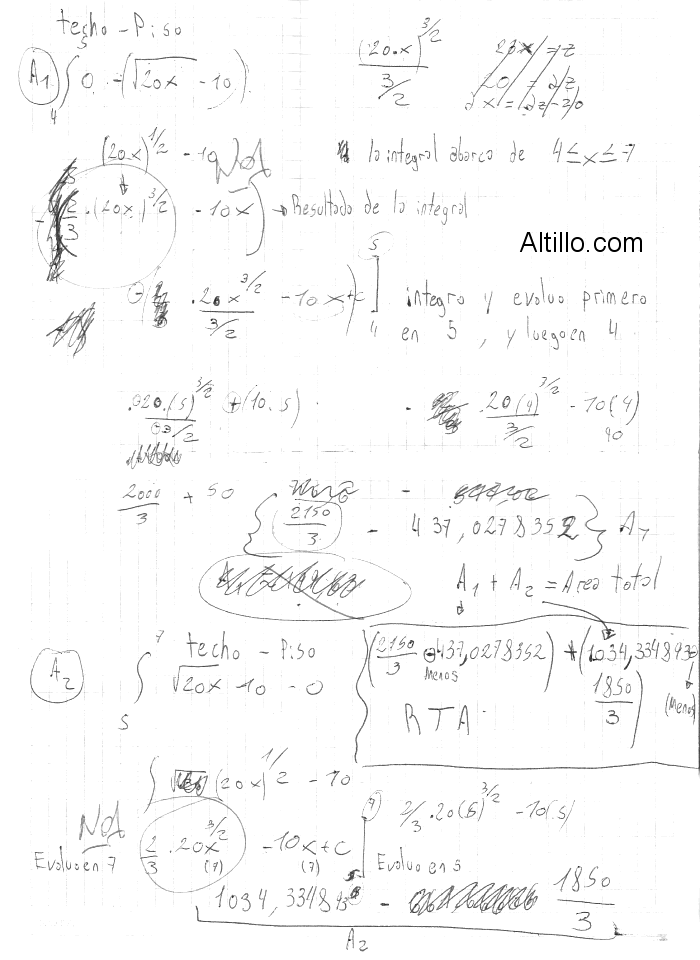 techo - Piso
A1 ∫ 0 - (√20x - 10)
4
(20.x)^3/2
3/2
20x = z
20 = dz
dx = dz - 20
(20x)^1/2 - 10
la integral abarca de 4 ≤ x ≤ 7
- (2/3 . (20x)^3/2 - 10x) → Resultado de la integral
Altillo.com
. 20x^3/2 / 3/2 - 10x + c) ] 5 4
integro y evaluo primero
en 5, y luego en 4
.20.(5)^3/2 / 3/2 + (10.5)
- .20(4)^3/2 / 3/2 - 10(4)
40
2000/3 + 50
{ 2150/3 - 437,0278352 } A1
A1 + A2 = Area total
A2 ∫ 7 5
techo - Piso
√20x - 10 - 0
(2150/3 - 437,0278352) + (1034,3348938
menos
1850/3) (Menos)
RTA
∫ (20x)^1/2 - 10
NOA
2/3 . 20x^3/2 - 10x + c
(7) (7)
Evaluo en 7
7
2/3 . 20(5)^3/2 - 10(5)
Evaluo en 5
1034,3348938 - 1850/3
A2